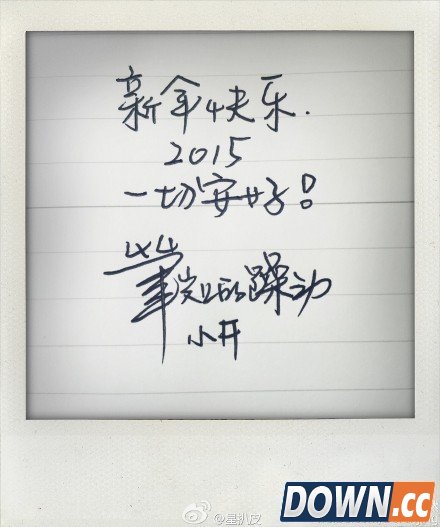 新年快乐.
2015
一切安好!
的躁动
小开
@星扒皮
DOWN.cc